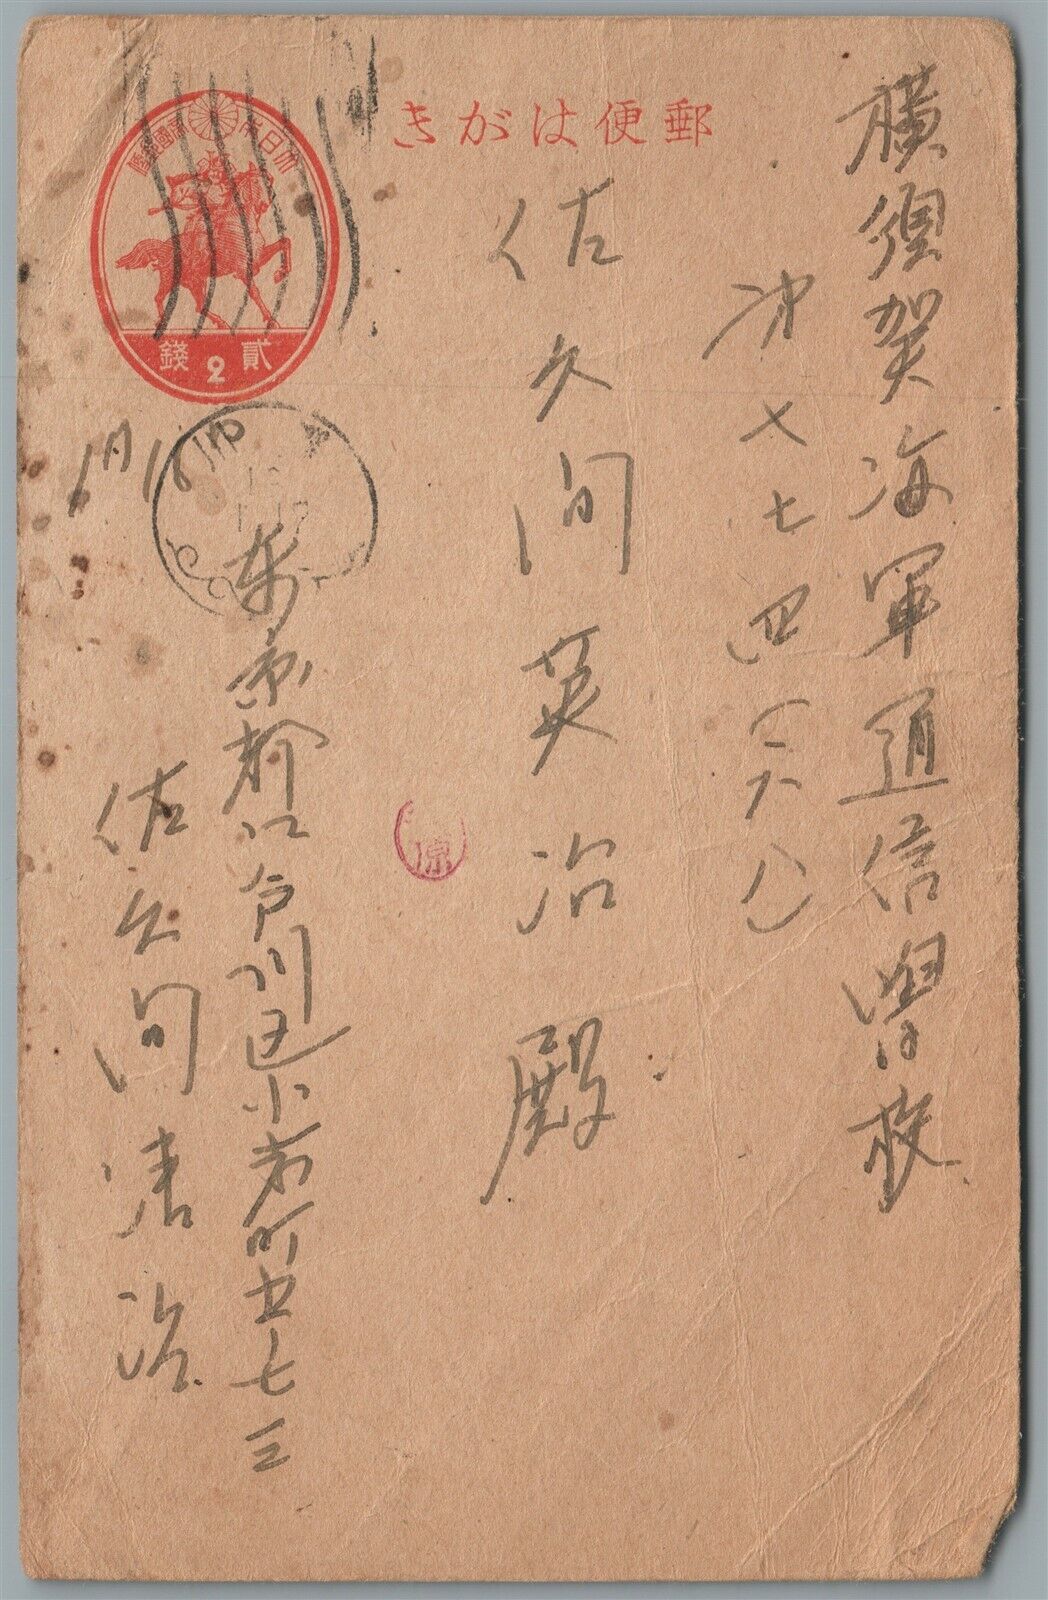 郵便はがき
大日本帝國郵便
貳錢
2
横須賀海軍通信學校
第七七四(六八)
佐久間英治殿
1月18
12
東京都江戸川区小岩町五七三
佐久間清治
原